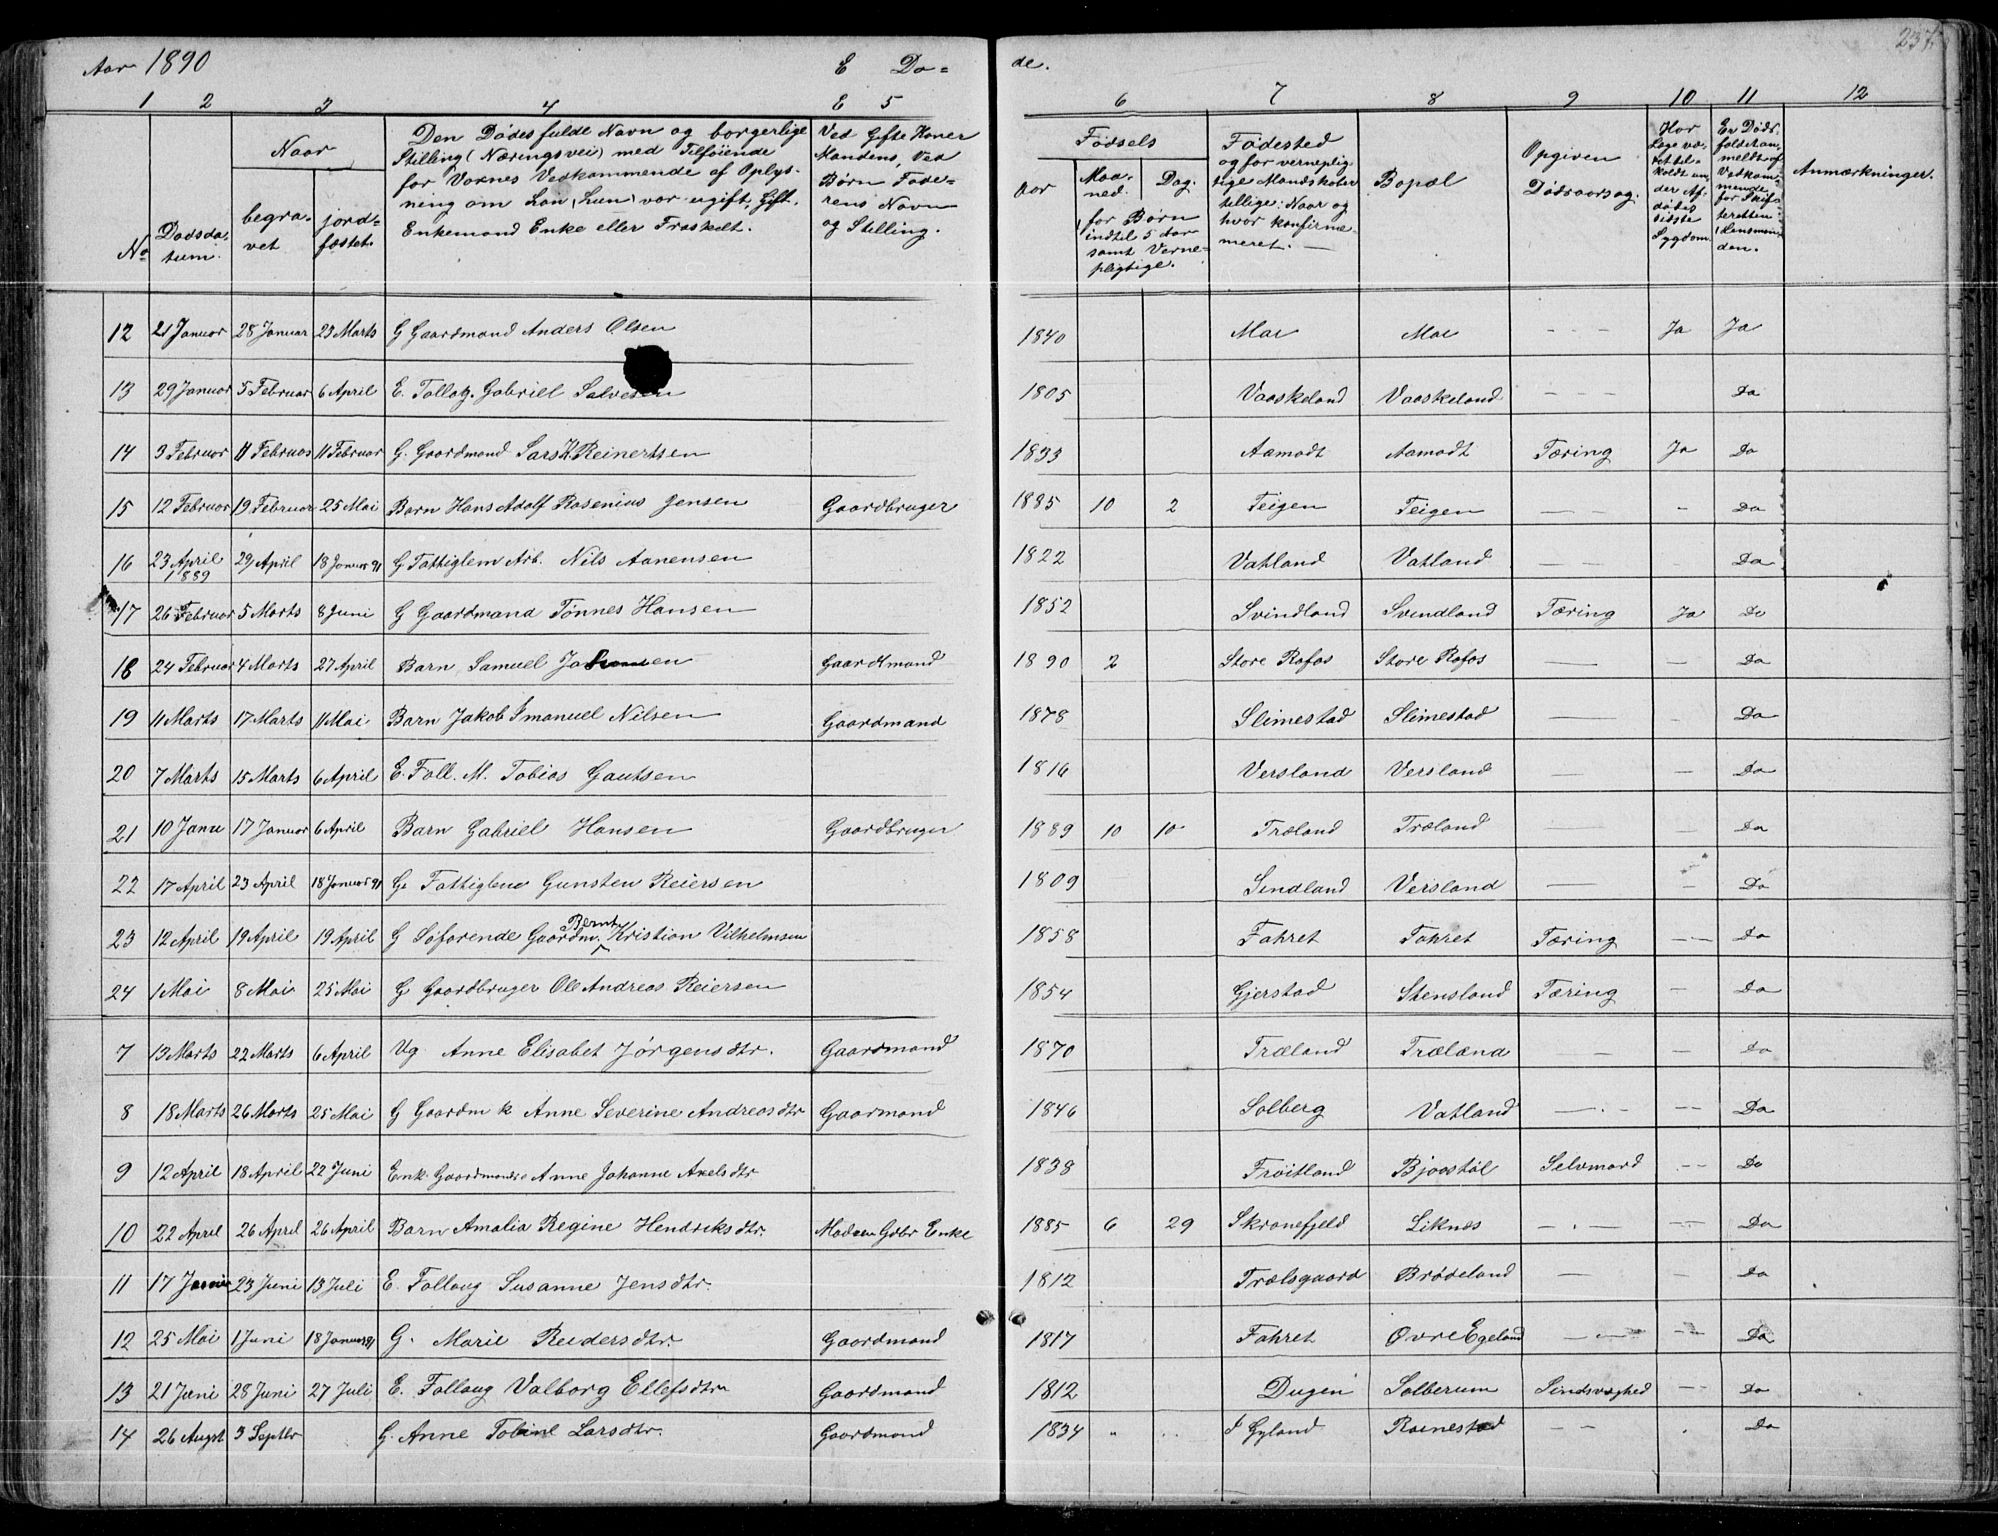 Aar 1890 E Dø= de. 237.
1 2 3 4 E 5 6 7 8 9 10 11 12
No Dødsdatum. Naar begravet jordfæstet. Den Dødes fulde Navn og borgerlige Stilling (Næringsvei) med Tilføiende for Voxnes Vedkommende af Oplysning om han (hun) var ugift, Gift, Enkemand Enke eller Fraskelt. Ved Gifte Koner Mandens, Ved Børn Faderens Navn og Stilling. Fødsels Aar Maaned. Dag. for Børn indtil 5 Aar samt Vernepligtige. Fødested og for verneplig- tige Mandskaber tillige: Naar og hvor konfirme- meret. Bopæl Opgiven Dødsaarsag. Har Læge været tilkaldt under Afdødes sidste Sygdom Er Dødsfaldet anmeldt af Vedkommende for Skifteretten (Lensmanden. Anmærkninger.
12 21 Januar 28 Januar 23 Marts G Gaardmand Anders Olsen 1840 Moi Moi - - - Ja Ja
13 29 Januar 5 Februar 6 April E. Follog. Gabriel Salvesen 1805 Vaaskeland Vaaskeland - - - Do
14 3 Februar 11 Februar 11 Februar G. Gaardmand Lars K Reinertsen 1833 Aamodt Aamodt Tæring Ja Do
15 12 Februar 19 Februar 25 Mai Barn Hans Adolf Rosenius Jensen Gaardbruger 1885 10 2 Teigen Teigen — — - Do
16 23 April 1889 29 April 18 Januar 91 G Fattiglem Arb. Nils Aanensen 1822 Vatland Vatland — — Do
17 26 Februar 5 Marts 8 Juni G Gaardmand Tønnes Hansen 1852 Svindland Svindland Tæring Ja Do
18 24 Februar 4 Marts 27 April Barn Samuel Gaardmand 1890 2 Store Rafos Store Rafos — — Do
19 11 Marts 17 Marts 11 Mai Barn Jakob Imanuel Nilsen Gaardmand 1878 Slimestad Slimestad — Do
20 7 Marts 15 Marts 6 April E. Foll. M. Tobias Gautsen 1816 Versland Versland — — Do
21 10 Janu 17 Januar 6 April Barn Gabriel Hansen Gaardbruger 1889 10 10 Træland Træland — — Do
22 17 April 23 April 18 Januar 91 G Fattiglem Gunsten Reiersen 1809 Sindland Versland — — Do
23 12 April 19 April 19 April G Søfarende Gaardm. Bernt Kristian Vilhelmsen 1858 Fahret Fahret Tæring — Do
24 1 Mai 8 Mai 25 Mai G Gaardbruger Ole Andreas Reiersen 1854 Gjerstad Stensland Tæring — Do
7 13 Marts 22 Marts 6 April Ug Anne Elisabet Jørgensdtr. Gaardmand 1870 Træland Træland — — Do
8 18 Marts 26 Marts 25 Mai G Gaardm k Anne Severine Andreasdtr Gaarmand 1846 Solberg Vatland — . — — Do
9 12 April 18 April 22 Juni Enk. Gaardmandse Anne Johanne Axelsdtr 1838 Frøitland Bjoostøl Selvmord — Do
10 22 April 26 April 26 April Barn Amalia Regine Hendriksdtr. Madsen Gdbr Enke 1885 6 29 Skranefjeld Liknes — . — — Do
11 17 Juni 23 Juni 13 Juli E. Follaug Susanne Jensdtr. 1812 Trælsgaard Brødeland — — Do
12 25 Mai 1 Juni 18 Januar 91 G. Marie Reidersdtr. Gaardmand 1817 Fahret Øvre Egeland — — Do
13 21 Juni 28 Juni 27 Juli E. Follaug Valborg Ellefsdtr Gaardmand 1812 Dugen Salberum Sindsvaghed — Do
14 26 Augst 3 Septbr G. Anne Tobine Larsdtr. Gaardmand 1834 " .. I Gyland Roinestad — — . Do